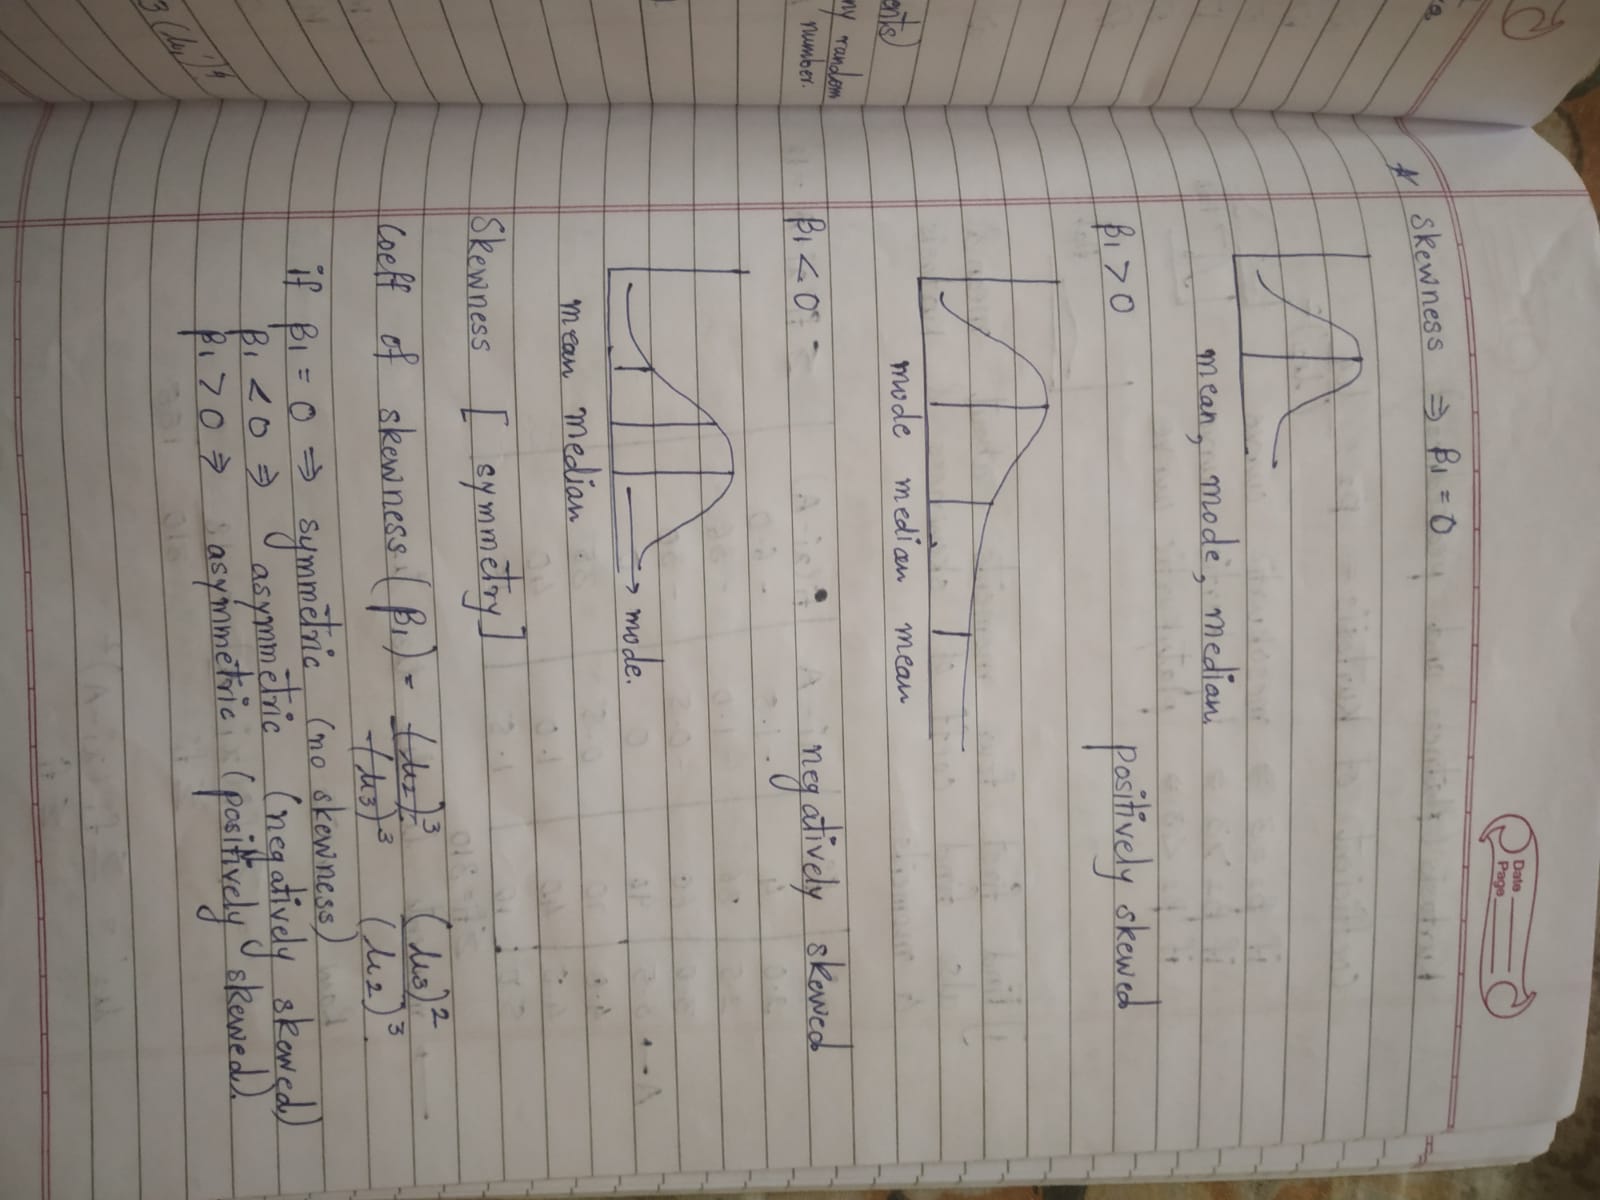 Date
Page
* Skewness ⇒ β1 = 0
mean, mode, median.
β1 > 0 positively skewed
mode median mean
β1 < 0 negatively skewed
→ mode.
mean median
Skewness [ symmetry ]
coeff of skewness (β1) = (μ2)³/(μ3)³ (μ3)²/(μ2)³.
if β1 = 0 ⇒ symmetric (no skewness)
β1 < 0 ⇒ asymmetric (negatively skewed)
β1 > 0 ⇒ asymmetric (positively skewed).
ents)
ny random
number.
3 (μ1')⁴